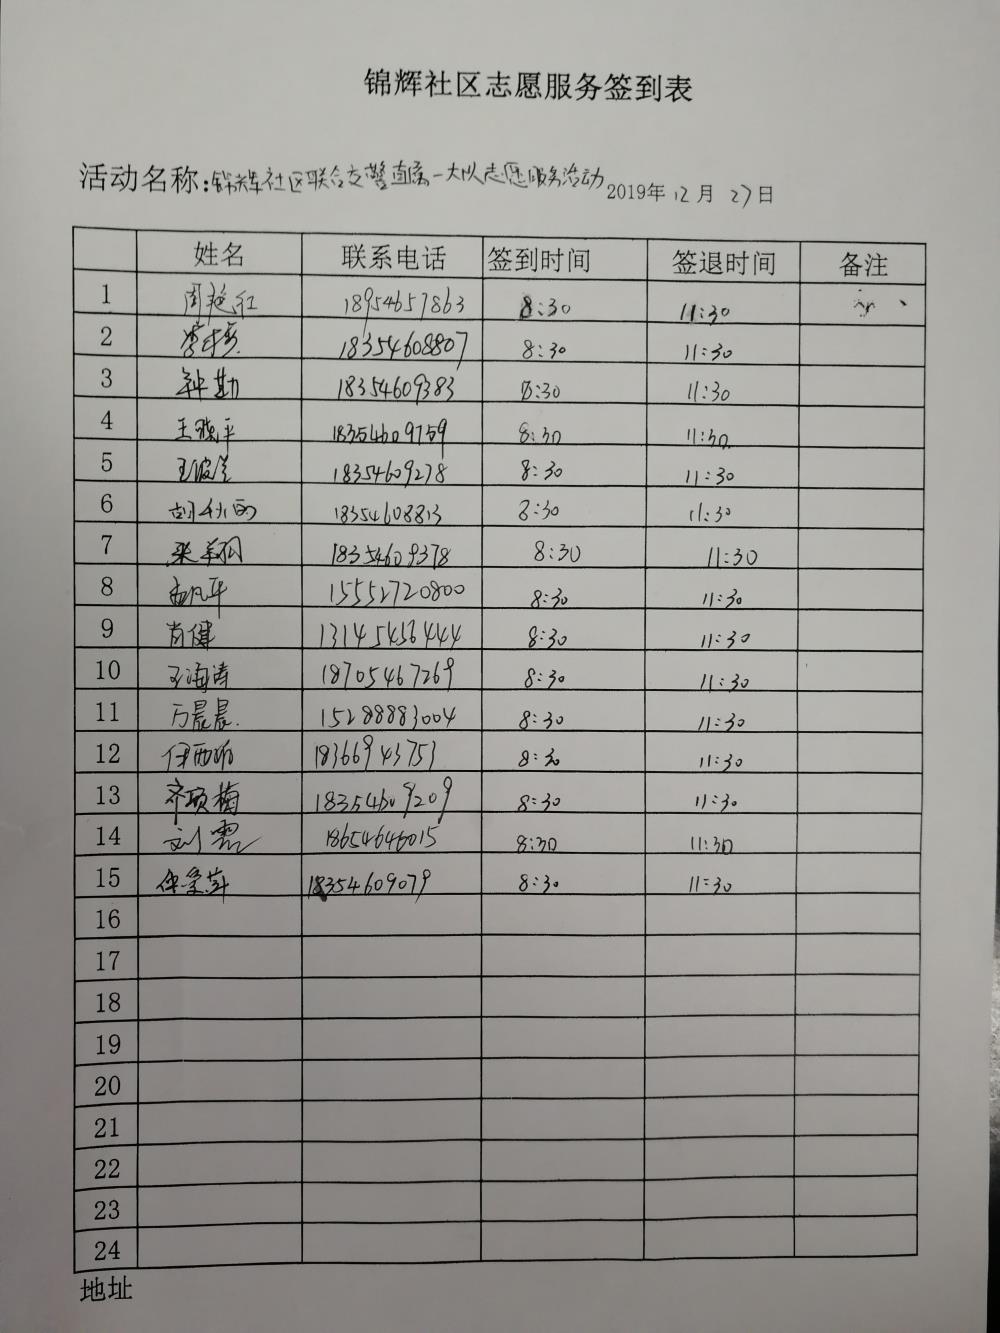 锦辉社区志愿服务签到表
活动名称:锦辉社区联合交警直属一大队志愿服务活动 2019年12月27日
姓名 联系电话 签到时间 签退时间 备注
1 周艳红 18954657863 8:30 11:30
2 18354608807 8:30 11:30
3 钟勤 18354609383 8:30 11:30
4 王晓平 18354609759 8:30 11:30
5 王俊兰 18354609278 8:30 11:30
6 胡秋雨 18354608813 8:30 11:30
7 18354609378 8:30 11:30
8 孟凡华 15552720800 8:30 11:30
9 肖健 13145456444 8:30 11:30
10 王海涛 18705467269 8:30 11:30
11 万晨晨 15288883004 8:30 11:30
12 伊西 18366943753 8:30 11:30
13 齐项梅 18354609209 8:30 11:30
14 刘霞 18654646015 8:30 11:30
15 18354609079 8:30 11:30
16
17
18
19
20
21
22
23
24
地址